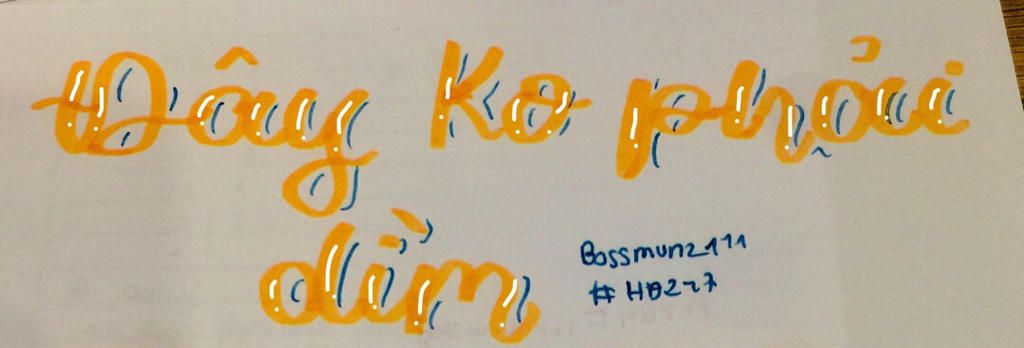 Đây Ko phải
dìm
Bossmunz111
#H0227